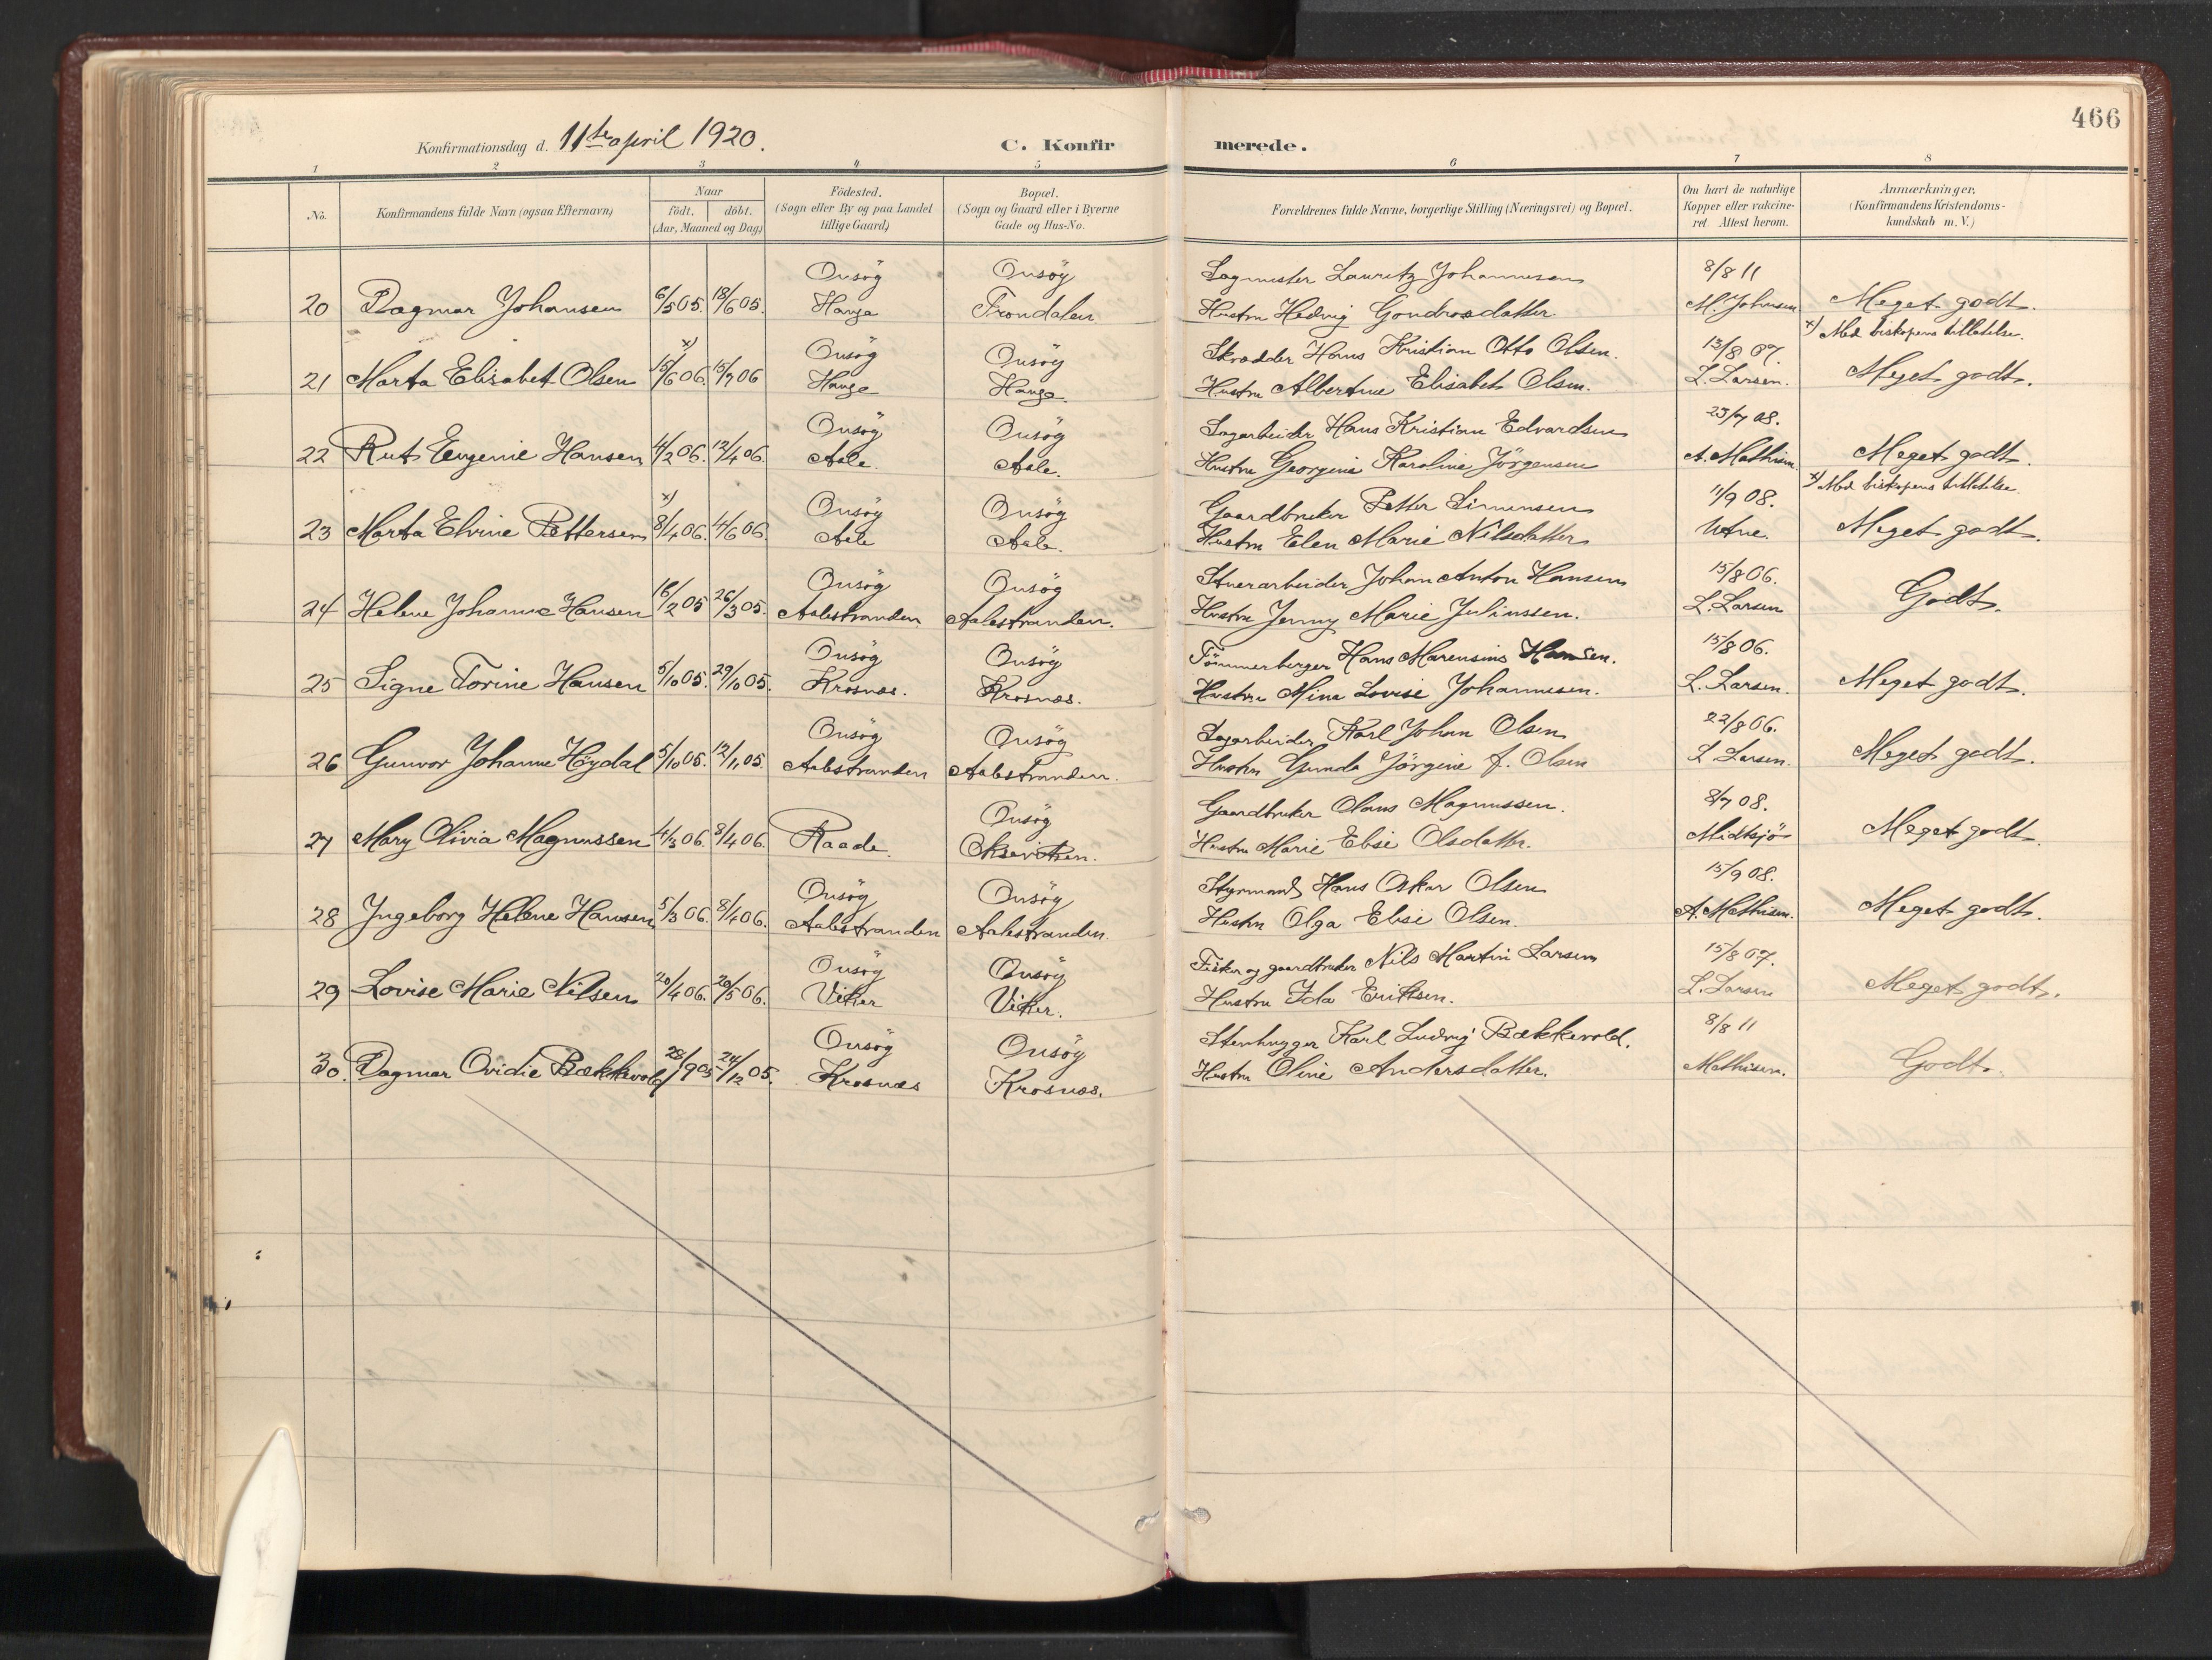 466
Konfirmationsdag d. 11te april 1920.
C. Konfirmerede.
1 2 3 4 5 6 7 8
No.
Konfirmandens fulde Navn (ogsaa Efternavn)
Naar
födt. döbt.
(Aar, Maaned og Dag)
Födested.
(Sogn eller By og paa Landet
tillige Gaard)
Bopæl.
(Sogn og Gaard eller i Byerne
Gade og Hus-No.
Forældrenes fulde Navne, borgerlige Stilling (Næringsvei) og Bopæl.
Om havt de naturlige
Kopper eller vakcine-
ret. Attest herom.
Anmærkninger.
(Konfirmandens Kristendoms-
kundskab m. V.)
Onsöy Onsöy Sagmester Lauritz Johannesen 8/8 11
20 Dagmar Johansen 6/5 05. 18/6 05. Hauge Trondalen Hustru Hedvig Gondrosdatter. M. Johnsen Meget godt.
x) Onsöy Onsöy Skrædder Hans Kristian Otto Olsen. 13/8 07. x) Med biskopens tilladelse.
21 Marta Elisabet Olsen 15/6 06. 15/7 06 Hauge Hauge. Hustru Albertine Elisabeth Olsen. L. Larsen. Meget godt.
Onsöy Onsöy Sagarbeider Hans Kristian Edvardsen 23/7 08.
22 Rut Eugenie Hansen 4/2 06. 12/4 06. Aale. Aale. Hustru Georgine Karoline Jörgensen A. Mathisen. Meget godt.
x) Onsöy Onsöy Gaardbruker Petter Simensen 11/9 08. x) Med biskopens tilladelse.
23 Marta Elvine Pettersen 8/4 06. 4/6 06. Aale Aale. Hustru Elen Marie Nilsdatter Utne. Meget godt.
Onsöy Onsöy Stuerarbeider Johan Anton Hansen 15/8 06.
24 Helene Johanne Hansen 16/2 05 26/3 05. Aalestranden Aalestranden. Hustru Jenny Marie Juliussen. L. Larsen Godt.
Onsöy Onsöy Tömmerberger Hans Marensius Hansen. 15/8 06.
25 Signe Torine Hansen 5/10 05. 29/10 05. Krosnæs. Krosnæs. Hustru Mina Lovise Johannesen. L. Larsen. Meget godt.
Onsöy Onsöy Sagarbeider Karl Johan Olsen 22/8 06.
26 Gunvor Johanne Höydal 5/10 05. 12/11 05. Aalestranden Aalestranden. Hustru Gunda Jörgine f. Olsen L Larsen. Meget godt.
Onsöy Gaardbruker Olaus Magnussen. 8/7 08.
27 Mary Olivia Magnussen 4/3 06. 8/4 06. Raade. Oksevikken. Hustru Marie Elise Olsdatter. Midtsjö Meget godt
Onsöy Onsöy Styrmand Hans Oskar Olsen 15/9 08.
28 Ingeborg Helene Hansen 5/3 06. 8/4 06. Aalestranden Aalestranden. Hustru Olga Elise Olsen. A. Mathisen. Meget godt.
Onsöy Onsöy Fisker og gaardbruker Nils Martin Larsen 15/8 07.
29 Lovise Marie Nilsen 20/4 06. 20/5 06. Viker Viker. Hustru Ida Eriksen. L. Larsen Meget godt.
Onsöy Onsöy Stenhugger Karl Ludvig Bækkevold. 8/8 11
30. Dagmar Ovidie Bækkevold 28/9 05 24/12 05. Krosnæs Krosnæs. Hustru Oline Andersdatter. Mathisen. Godt.